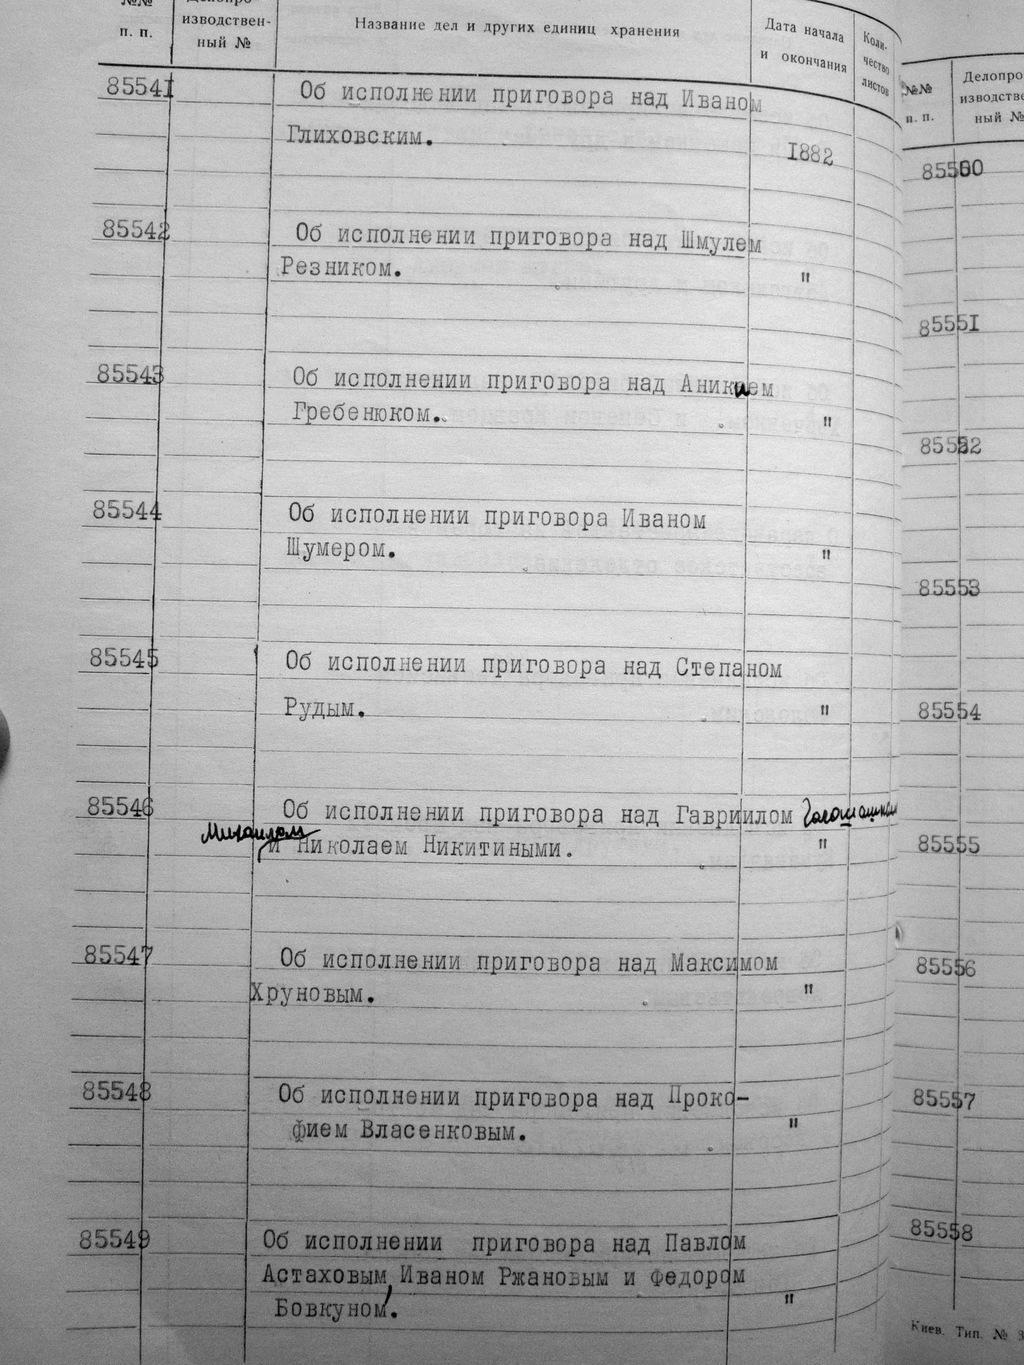 №№ п. п.
Делопро-
изводствен-
ный №
Название дел и других единиц хранения
Дата начала
и окончания
Коли-
чество
листов
85541
Об исполнении приговора над Иваном
Глиховским.
1882
85542
Об исполнении приговора над Шмулем
Резником.
"
85543
Об исполнении приговора над Аникием
Гребенюком.
"
85544
Об исполнении приговора Иваном
Шумером.
"
85545
Об исполнении приговора над Степаном
Рудым.
"
85546
Об исполнении приговора над Гавриилом
Михаилом
и Николаем Никитиными.
"
85547
Об исполнении приговора над Максимом
Хруновым.
"
85548
Об исполнении приговора над Проко-
фием Власенковым.
"
85549
Об исполнении приговора над Павлом
Астаховым, Иваном Ржановым и Федором
Бовкуном.
"
№№
п. п.
Делопро
изводстве
ный №
85550
85551
85552
85553
85554
85555
85556
85557
85558
Киев. Тип. № 3